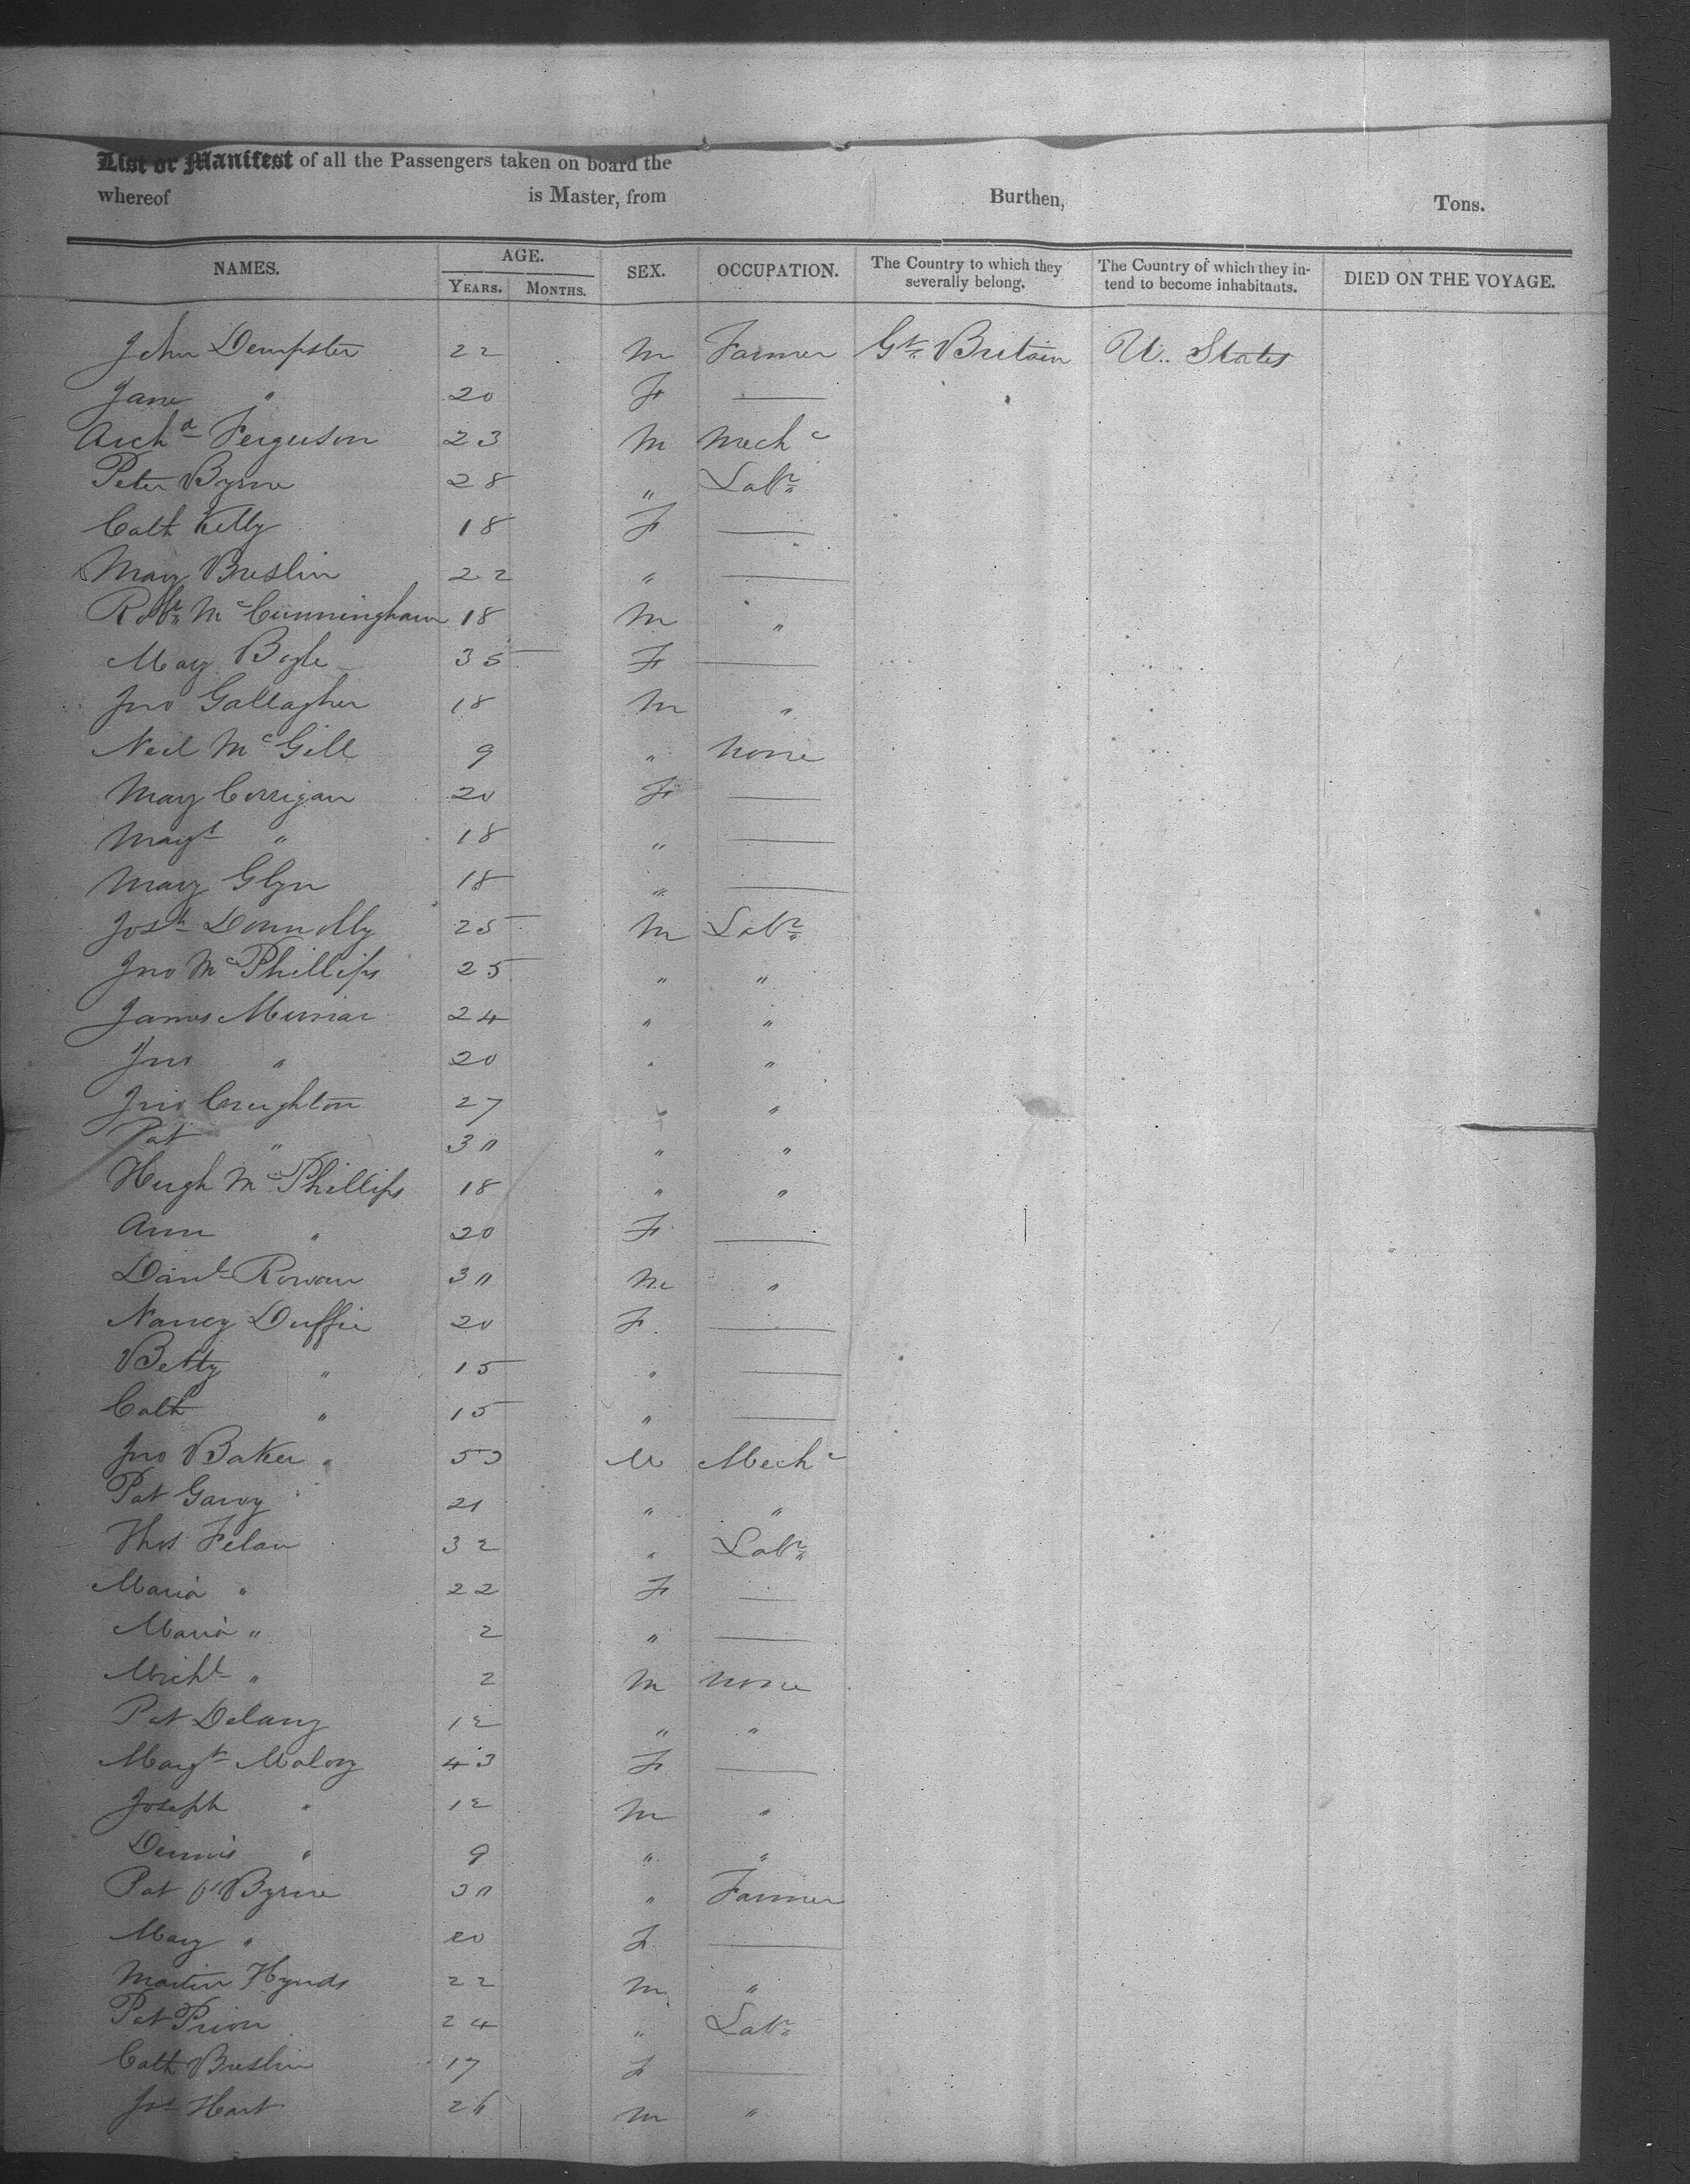 List or Manifest of all the Passengers taken on board the
whereof is Master, from Burthen, Tons.
NAMES. AGE. YEARS. MONTHS. SEX. OCCUPATION. The Country to which they severally belong. The Country of which they intend to become inhabitants. DIED ON THE VOYAGE.
John Dempster 22 M Farmer Gt Britain U. States
Jane " 20 F —
Archd Ferguson 23 M Mechc
Peter Byrne 28 " Labr
Cath Kelly 18 F —
Mary Breslin 22 " —
Robt McCunningham 18 M "
Mary Boyle 35 F —
Jno Gallagher 18 M "
Neil McGill 9 " None
Mary Corrigan 20 F —
Magt " 18 " —
Mary Glyn 18 " —
Josh Donnolly 25 M Labr
Jno McPhillips 25 " "
James 24 " "
Jno " 20 " "
Jno Creighton 27 " "
Pat " 30 " "
Hugh McPhillips 18 " "
Ann " 20 F —
Danl Rowan 30 M "
Nancy Duffie 20 F —
Betty " 15 " —
Cath " 15 " —
Jno Baker " 50 M Mechc
Pat Garvy 21 " "
Thos Felan 32 " Labr
Maria " 22 F —
Maria " 2 " —
Michl " 2 M none
Pat Delany 12 " "
Margt Malony 43 F —
Joseph " 12 M "
Dennis " 9 " "
Pat O'Byrne 30 " Farmer
Mary " 20 F —
Martin Hynds 22 M "
Pat Prion 24 " Labr
Cath Breslin 17 F —
Jos Hart 26 M "